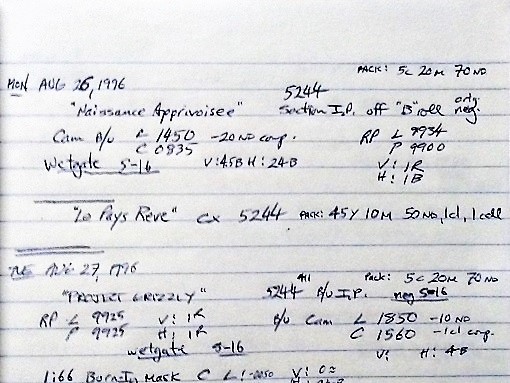 PACK: 5c 20M 70ND
MON AUG 26, 1996
5244
"Naissance Apprivoisee" Section I.P. off "B" roll orig. neg.
Cam B/U L 1450 -20ND comp. RP L 9934
C 0835 P 9900
Wetgate S-16 V: 45B H: 24B V: 1R
H: 1B
"Le Pays Reve" cx 5244 PACK: 45Y 10M 50ND, 1cl, 1cell
TUE AUG 27, 1996
Pack: 5c 20M 70ND
"PROJECT GRIZZLY" 5244 B/U I.P. neg S-16
RP L 9925 V: 1R B/U Cam L 1850 -10ND
P 9925 H: 1R C 1560 -1cl comp.
wetgate S-16 V: H: 4B
1166 Burn-In Mask C L: